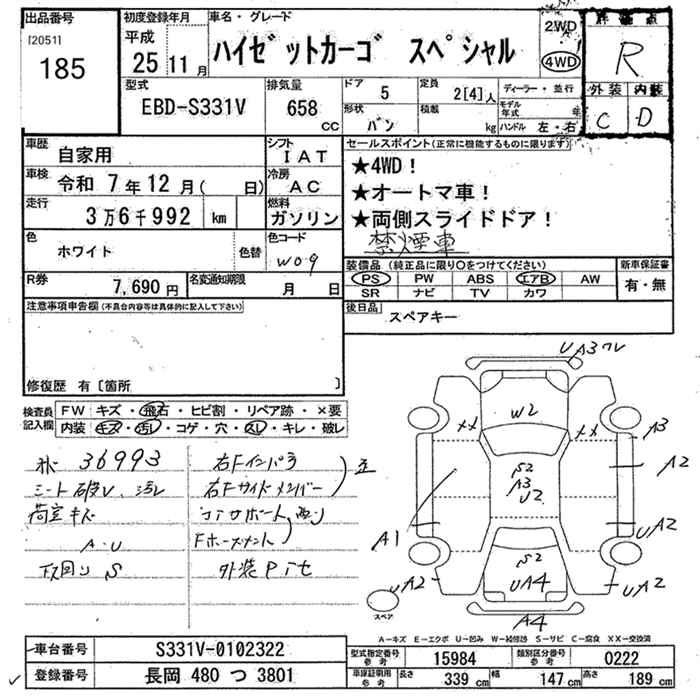 出品番号
[2051]
185
初度登録年月
平成
25 11月
車名・グレード
ハイゼットカーゴ スペシャル
2WD
4WD
評価点
R
外装 内装
C D
型式
EBD-S331V
排気量
658
cc
ドア
5
定員
2[4]人
形状
バン
積載
kg
ディーラー・並行
モデル年式 年
ハンドル 左・右
車歴
自家用
シフト
IAT
車検
令和 7年12月( 日)
冷房
AC
走行
3万6千992 km
燃料
ガソリン
色
ホワイト
色替
色コード
W09
R券
7,690円
名変通知期限
月 日
セールスポイント(正常に機能するものに限ります)
★4WD!
★オートマ車!
★両側スライドドア!
禁煙車
装備品 (純正品に限り○をつけてください)
PS PW ABS エアB AW
SR ナビ TV カワ
新車保証書
有・無
後日品
スペアキー
注意事項申告欄(不具合内容等は具体的に記入して下さい)
修復歴 有〔箇所 〕
検査員記入欄
FW キズ・飛石・ヒビ割・リペア跡・×要
内装 キズ・汚レ・コゲ・穴・スレ・キレ・破レ
36993
シート破レ、汚レ
荷室キズ
A・U
下回り S
右Fインパラ
右Fサイドメンバー
コアサポート
外装Pイセ
UA3ワレ
W2
XX
XX
A3
A2
S2
A3
U2
A1
UA2
UA2
UA2
S2
UA4
A4
スペア
A-キズ E-エクボ U-凹み W-補修跡 S-サビ C-腐食 XX-交換済
車台番号
S331V-0102322
登録番号
長岡 480 つ 3801
型式指定番号
参考
15984
類別区分番号
参考
0222
車庫証明用
参考
長さ
339 cm
幅
147 cm
高さ
189 cm